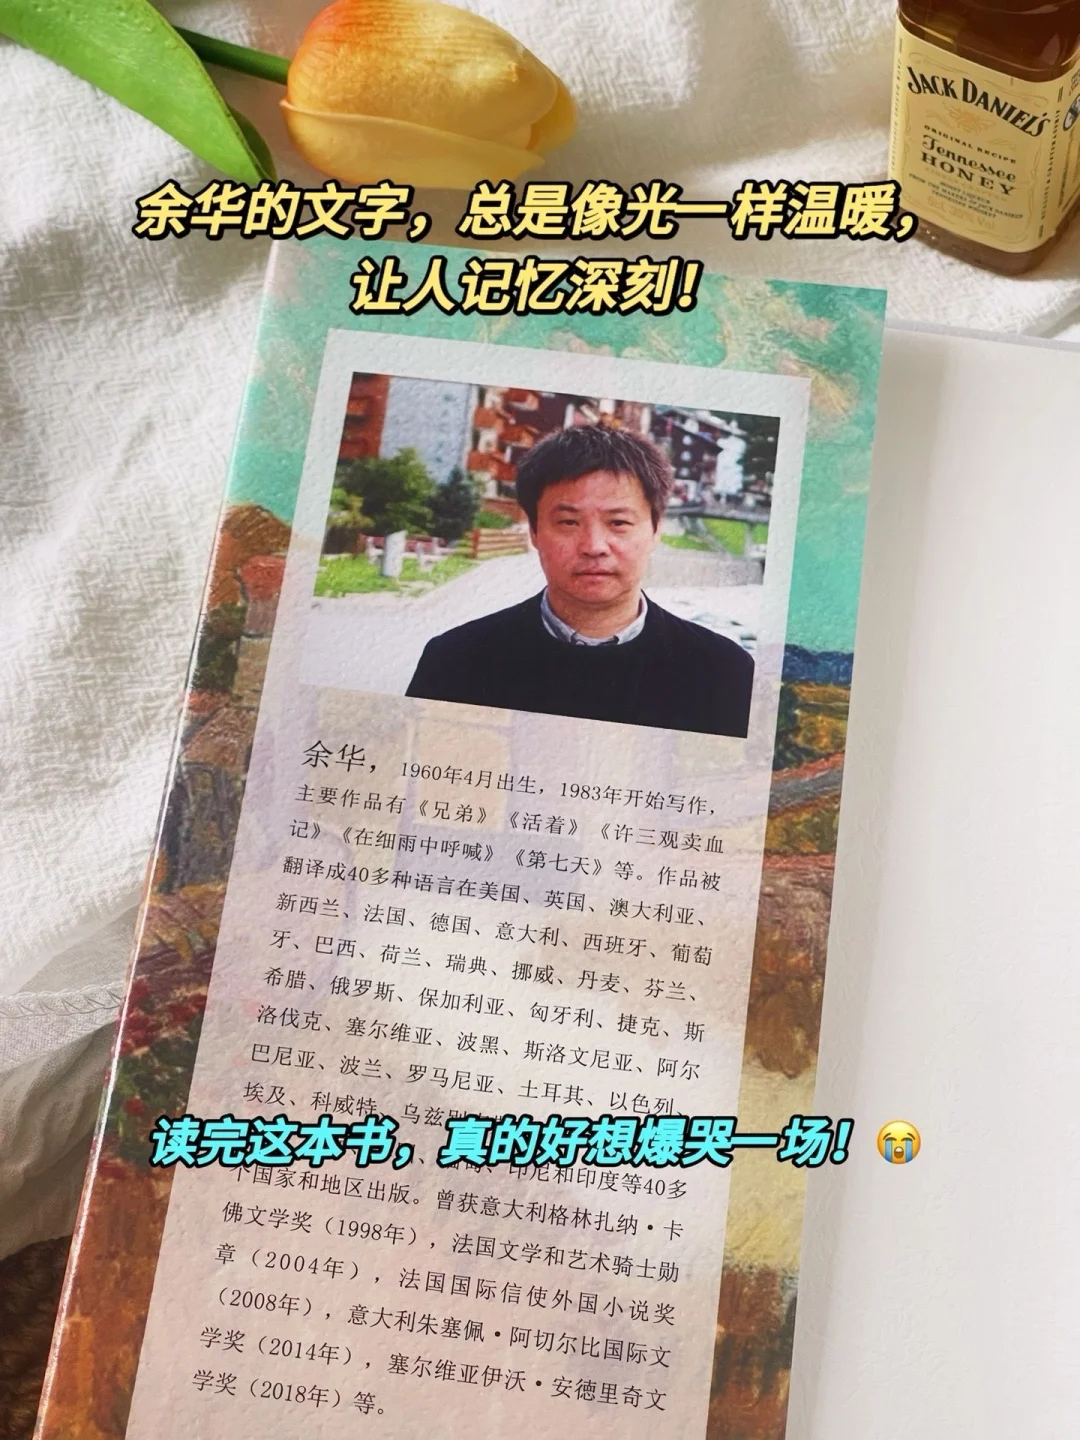 JACK DANIEL'S
ORIGINAL RECIPE
Tennessee
HONEY
余华的文字，总是像光一样温暖，
让人记忆深刻！
余华，1960年4月出生，1983年开始写作，
主要作品有《兄弟》《活着》《许三观卖血
记》《在细雨中呼喊》《第七天》等。作品被
翻译成40多种语言在美国、英国、澳大利亚、
新西兰、法国、德国、意大利、西班牙、葡萄
牙、巴西、荷兰、瑞典、挪威、丹麦、芬兰、
希腊、俄罗斯、保加利亚、匈牙利、捷克、斯
洛伐克、塞尔维亚、波黑、斯洛文尼亚、阿尔
巴尼亚、波兰、罗马尼亚、土耳其、以色列、
埃及、科威特、乌兹
读完这本书，真的好想爆哭一场！😭
印尼和印度等40多
个国家和地区出版。曾获意大利格林扎纳·卡
佛文学奖（1998年），法国文学和艺术骑士勋
章（2004年），法国国际信使外国小说奖
（2008年），意大利朱塞佩·阿切尔比国际文
学奖（2014年），塞尔维亚伊沃·安德里奇文
学奖（2018年）等。